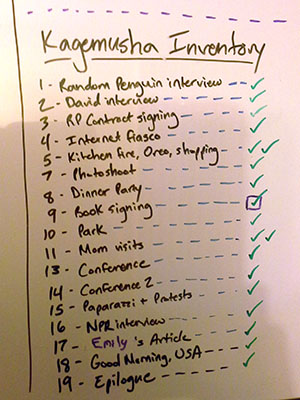 Kagemusha Inventory
1 - Random Penguin interview ✓
2 - David interview ✓
3 - RP Contract signing ✓
4 - Internet fiasco ✓
5 - Kitchen fire, Oreo, shopping ✓✓
7 - Photoshoot ✓
8 - Dinner Party ✓
9 - Book signing ✓
10 - Park ✓
11 - Mom visits ✓✓
13 - Conference ✓
14 - Conference 2 ✓
15 - Paparazzi + Protests ✓
16 - NPR interview ✓
17 - Emily's Article ✓
18 - Good Morning, USA ✓
19 - Epilogue ✓